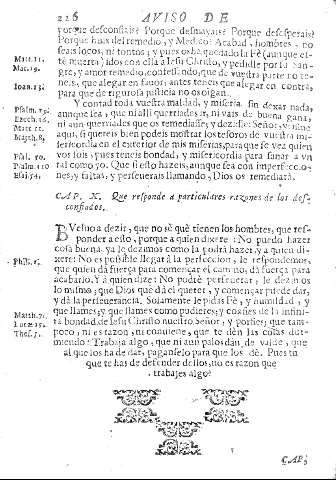 226 AVISO DE
porque desconfiais? Porque desmayais? Porque desesperais?
Porque huis del remedio, y Medico? Acabad, hombres, no
seais locos, ni tontos; y pues os ha quedado la Fè (aunque es-
Matt. 11. tè muerta) idos con ella à Jesu Christo, y pedidle por su San-
Mat. 19. gre, y amor remedio, confessando, que de vuestra parte no te-
neis, que alegar en favor, antes teneis que alegar en contra,
Ioan. 13. para que de rigurosa justicia no os oigan.
Y contad toda vuestra maldad, y miseria sin dexar nada,
Psalm. 15. aunque sea, que ni alli querriades ir, ni vais de buena gana,
Ezech. 16. ni aun querriades que os remediasse; y dezidle: Señor, veisme
Matt. 11. aqui, si quereis bien podeis mostrar los tesoros de vuestra mi-
Matth. 8. sericordia en el exterior de mis miserias, para que se vea quien
Psal. 50. vos sois, pues teneis bondad, y misericordia para sanar a vn
Psalm. 110 tal como yo. Que si esto hazeis, aunque sea con imperfeccio-
Isai. 54. nes, y faltas, y perseverais llamando, Dios os remediarà.
CAP. X. Que responde a particulares razones de los des-
confiados.
BVelvo a dezir, que no sè què tienen los hombres, que res-
ponder a esto, porque a quien dixere: No puedo hazer
cosa buena, ya le dezimos como la podrà hazer, y a quien di-
xere: No es possible llegar à la perfeccion, le respondemos,
Phili. 1. que quien dà fuerça para començar el camino, dà fuerça para
acabarlo. Y à quien dize: No podrè perseverar, le dezimos
lo mismo; que Dios que dà el querer, y començar puede dar,
y dà la perseverancia. Solamente le pidas Fè, y humildad, y
Matth. 7. que llames, y que llames como pudieres; y confies de la infini-
Luc. 15. ta bondad de Jesu Christo nuestro Señor, y porfies; que tam-
Thes. 3. poco, ni es razon, ni conviene, que te dèn las cosas dur-
miendo: Trabaja algo, que ni aun palos dàn de valde, que
al que los ha de dar, pagansелo para que los dè. Pues tu
que te has de defender dellos, no es razon que
trabajes algo?
CAP.